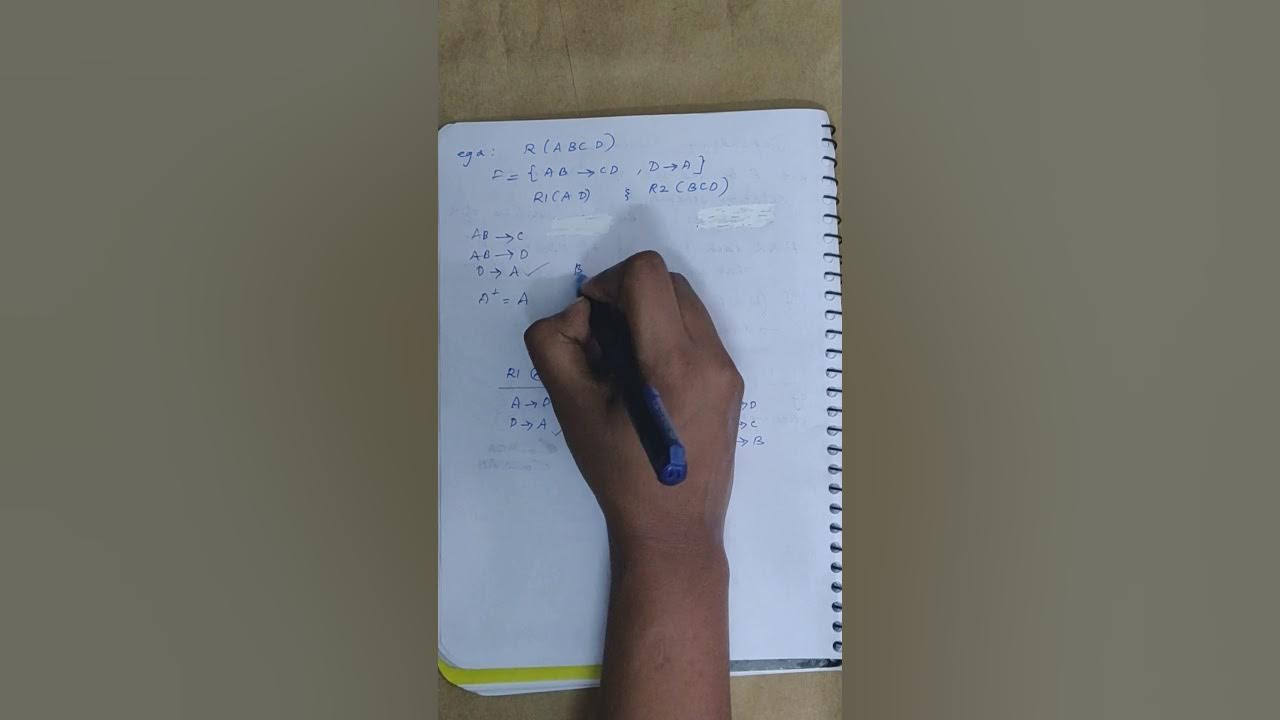 eg2: R(ABCD)
F = { AB → CD , D → A }
R1(AD) & R2(BCD)
AB → C
AB → D
D → A ✓
A⁺ = A
B
R1
A → D
D → A ✓
→ D
→ C
→ B